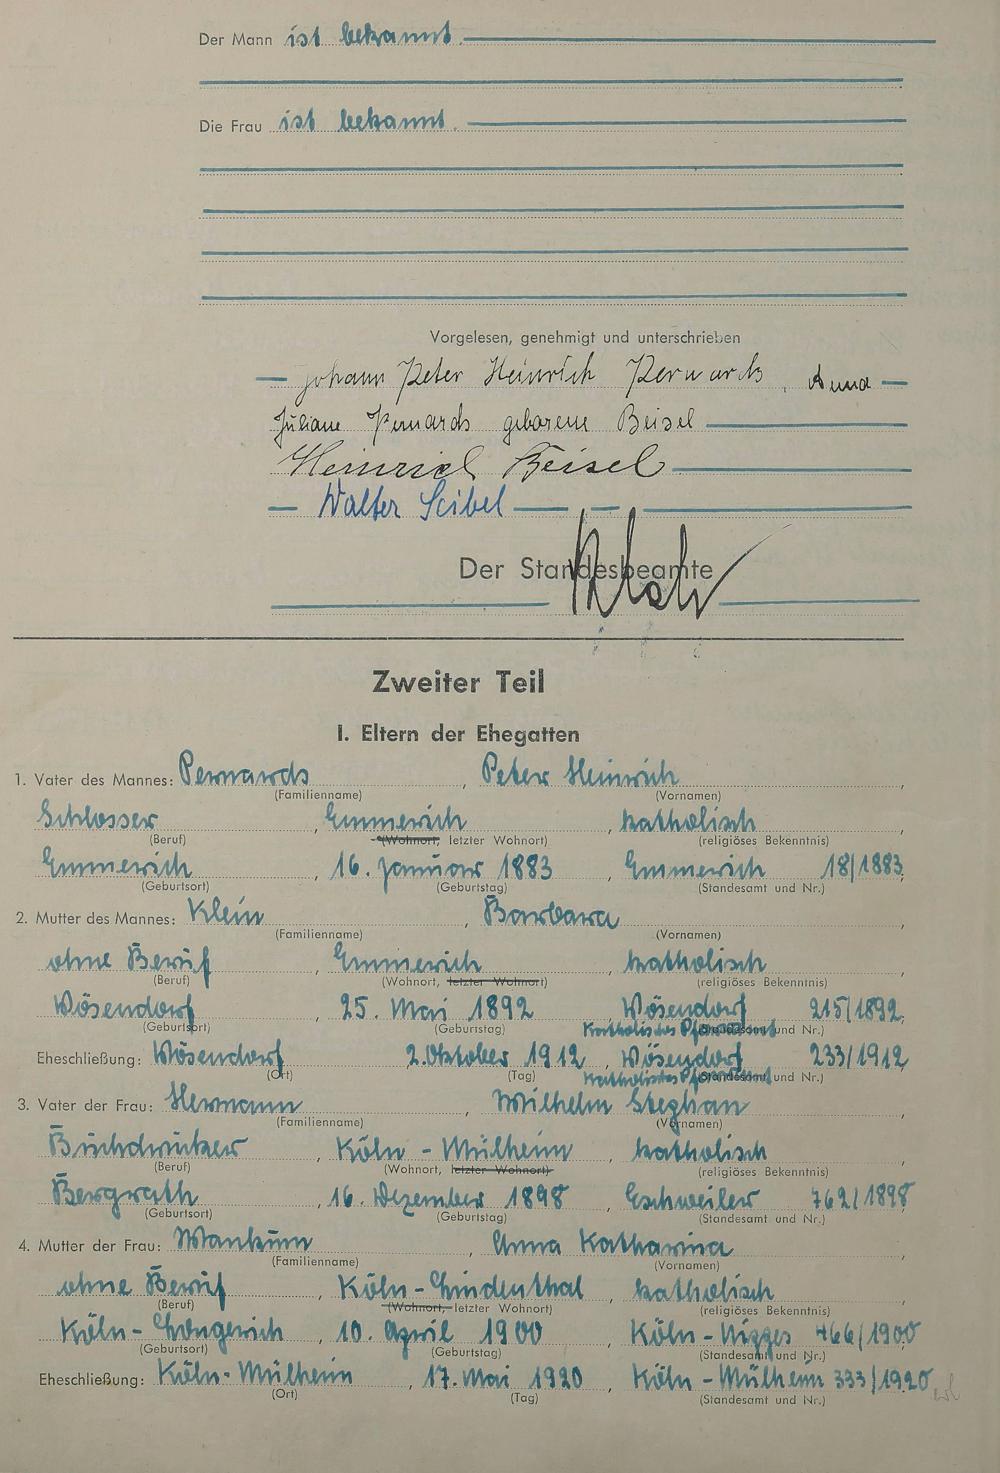 Der Mann ist bekannt.
Die Frau ist bekannt.
Vorgelesen, genehmigt und unterschrieben
Johann Peter Heinrich Pernards, Anna
Juliane Pernards geborene Beisel
Heinrich Beisel
Walter Seibel
Der Standesbeamte
Zweiter Teil
I. Eltern der Ehegatten
1. Vater des Mannes: Pernards, Peter Heinrich,
(Familienname) (Vornamen)
Schlosser, Emmerich, katholisch,
(Beruf) (Wohnort, letzter Wohnort) (religiöses Bekenntnis)
Emmerich, 16. Januar 1883, Emmerich 18/1883,
(Geburtsort) (Geburtstag) (Standesamt und Nr.)
2. Mutter des Mannes: Klein, Barbara,
(Familienname) (Vornamen)
ohne Beruf, Emmerich, katholisch,
(Beruf) (Wohnort, letzter Wohnort) (religiöses Bekenntnis)
Wösendorf, 25. Mai 1892, Wösendorf 215/1892,
(Geburtsort) (Geburtstag) Katholisches Pfarramt (Standesamt und Nr.)
Eheschließung: Wösendorf, 2. Oktober 1912, Wösendorf 233/1912,
(Ort) (Tag) Katholisches Pfarramt (Standesamt und Nr.)
3. Vater der Frau: Hermann, Wilhelm Stephan,
(Familienname) (Vornamen)
Buchdrucker, Köln-Mülheim, katholisch,
(Beruf) (Wohnort, letzter Wohnort) (religiöses Bekenntnis)
Bergrath, 16. Dezember 1898, Eschweiler 762/1898,
(Geburtsort) (Geburtstag) (Standesamt und Nr.)
4. Mutter der Frau: Mankum, Anna Katharina,
(Familienname) (Vornamen)
ohne Beruf, Köln-Lindenthal, katholisch,
(Beruf) (Wohnort, letzter Wohnort) (religiöses Bekenntnis)
Köln-Longerich, 10. April 1900, Köln-Nippes 466/1900,
(Geburtsort) (Geburtstag) (Standesamt und Nr.)
Eheschließung: Köln-Mülheim, 17. Mai 1920, Köln-Mülheim 333/1920
(Ort) (Tag) (Standesamt und Nr.)